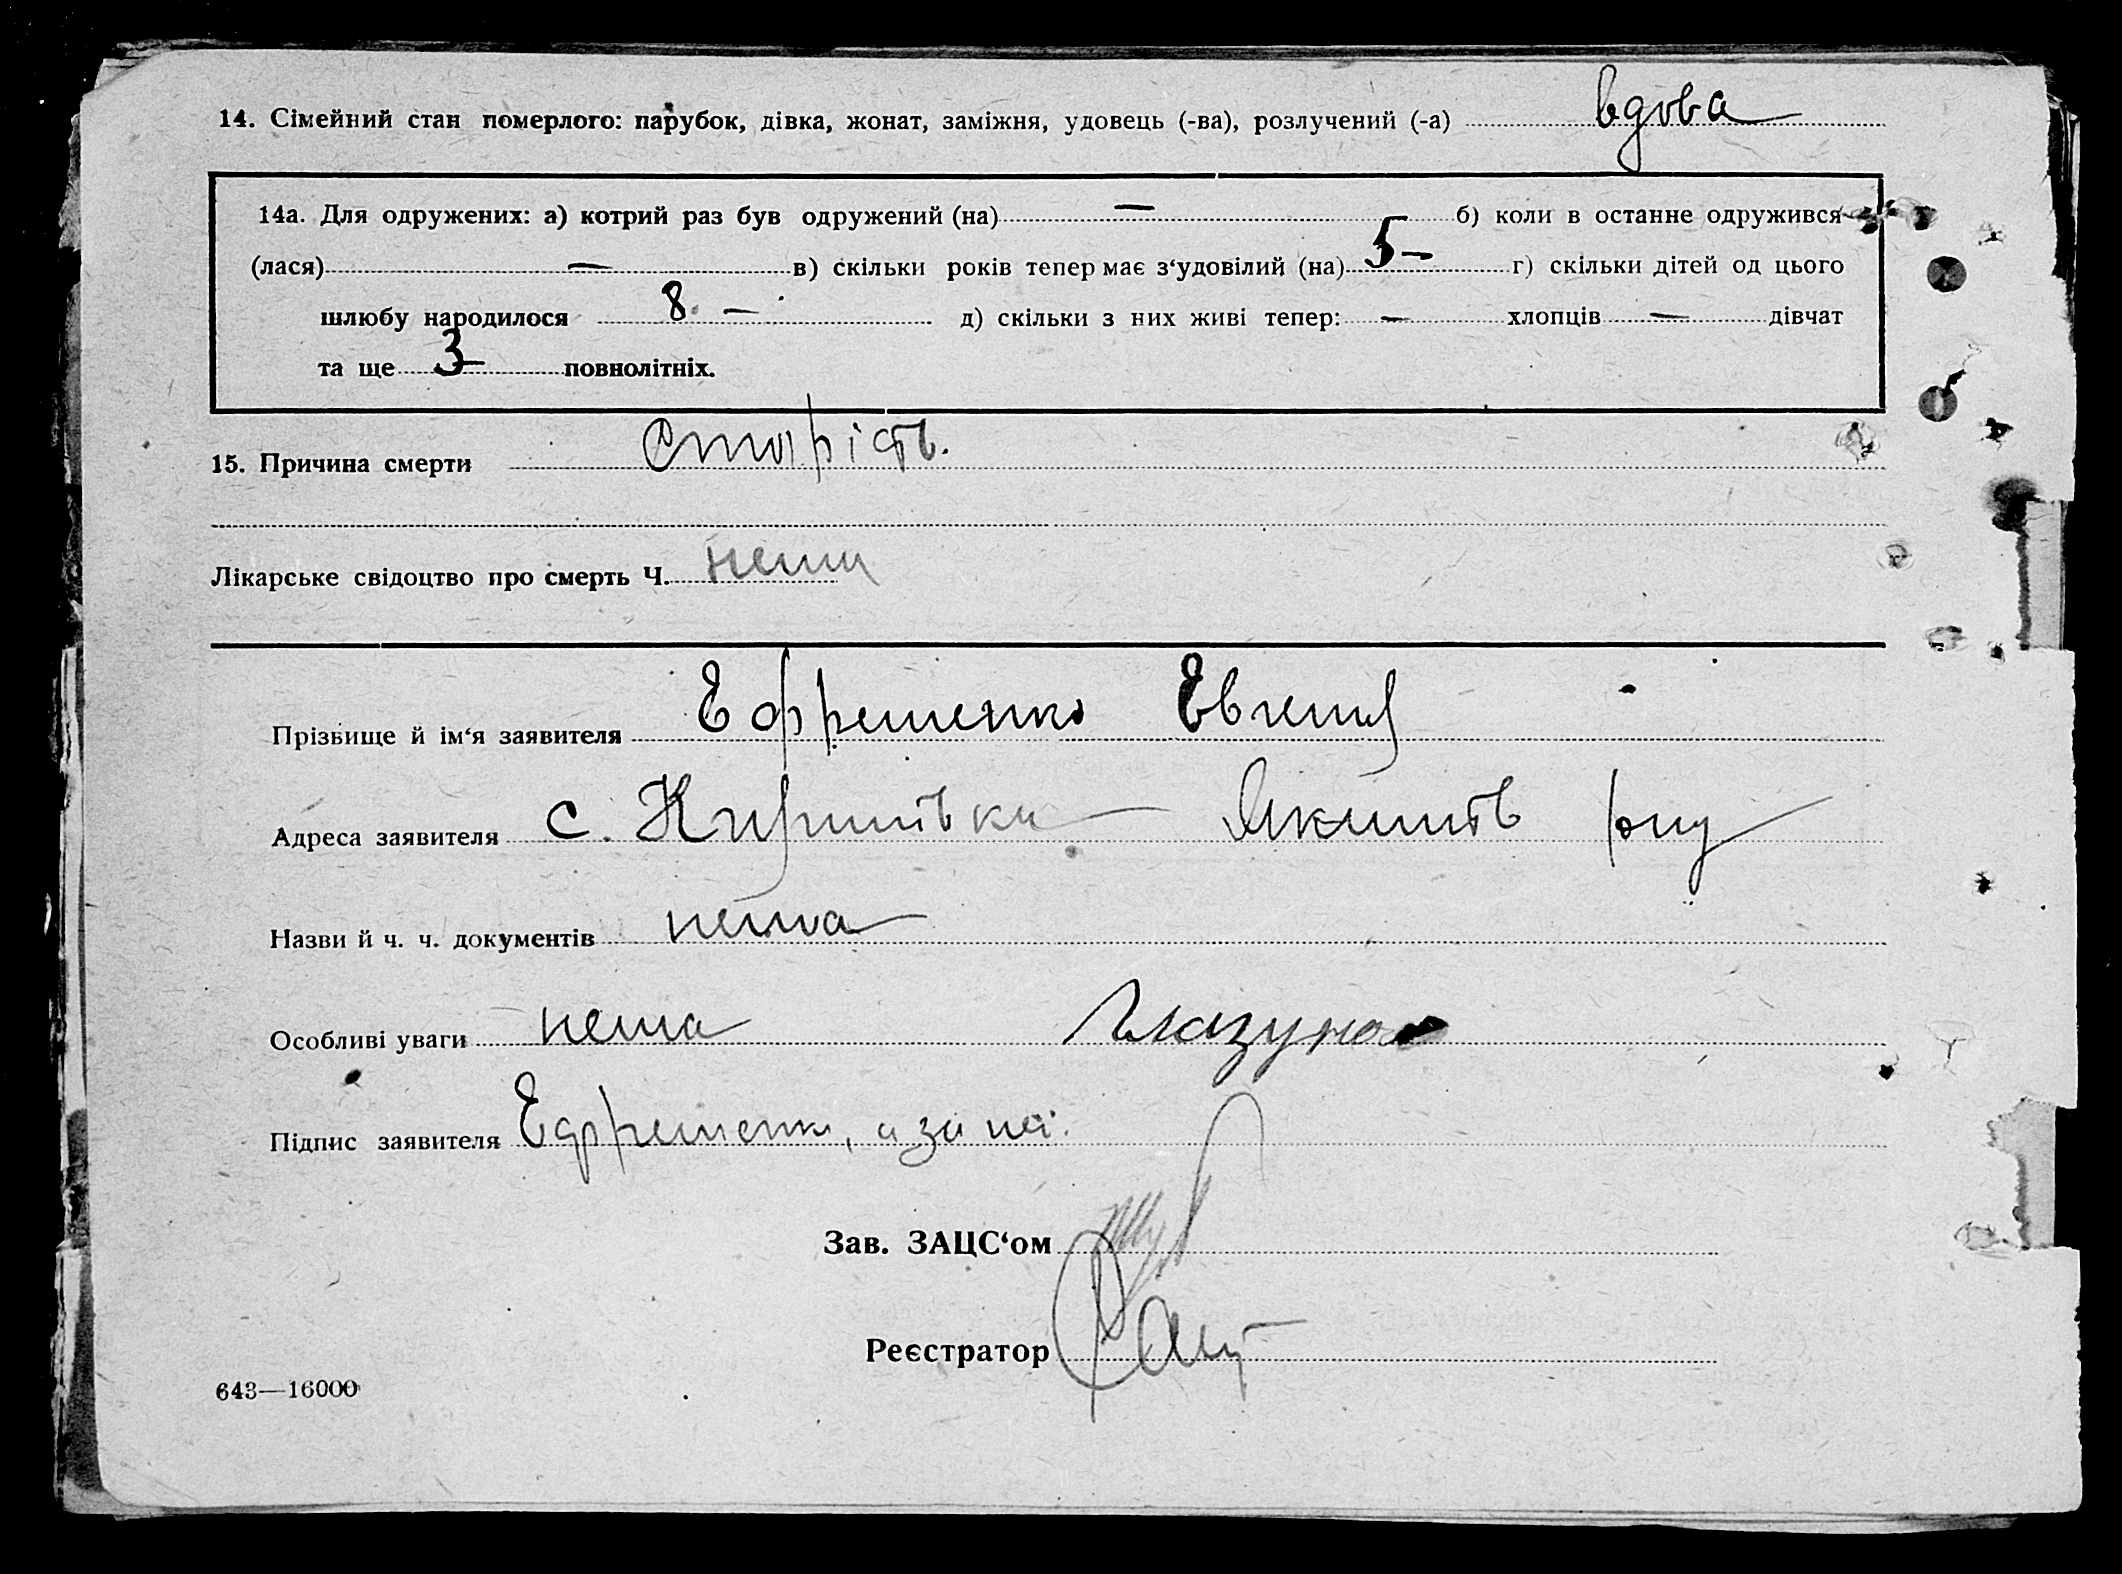 14. Сімейний стан померлого: парубок, дівка, жонат, заміжня, удовець (-ва), розлучений (-а) вдова
14а. Для одружених: а) котрий раз був одружений (на) — б) коли в останне одружився
(лася) — в) скільки років тепер має з‘удовілий (на) 5 — г) скільки дітей од цього
шлюбу народилося 8 — д) скільки з них живі тепер: — хлопців — дівчат
та ще 3 — повнолітніх.
15. Причина смерти старість.
Лікарське свідоцтво про смерть Ч. нема
Прізвище й ім‘я заявителя Ефременко Евгения
Адреса заявителя с. Якимів рну
Назви й ч. ч. документів нема
Особливі уваги нема
Підпис заявителя Ефременк, а за неї
Зав. ЗАЦС‘ом
Реєстратор
643—16000